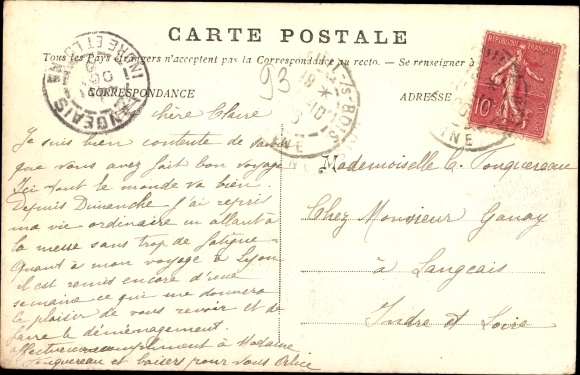 CARTE POSTALE
Tous les Pays étrangers n'acceptent pas la Correspondance au recto. — Se renseigner à
CORRESPONDANCE
ADRESSE
93
LANGEAIS
INDRE ET LOIRE
RÉPUBLIQUE FRANÇAISE
10
chère Claire
Je suis bien contente de savoir
que vous avez fait bon voyage
Ici tout le monde va bien.
Depuis Dimanche j'ai repris
ma vie ordinaire en allant à
la messe sans trop de fatigue
Quant à mon voyage à Lyon
il est remis encore d'une
semaine ce qui me donnera
le plaisir de vous revoir et de
faire le déménagement.
compliment à Madame
Touquereau et baisers pour vous Alice
Mademoiselle C. Touquereau
Chez Monsieur Ganay
à Langeais
Indre et Loire